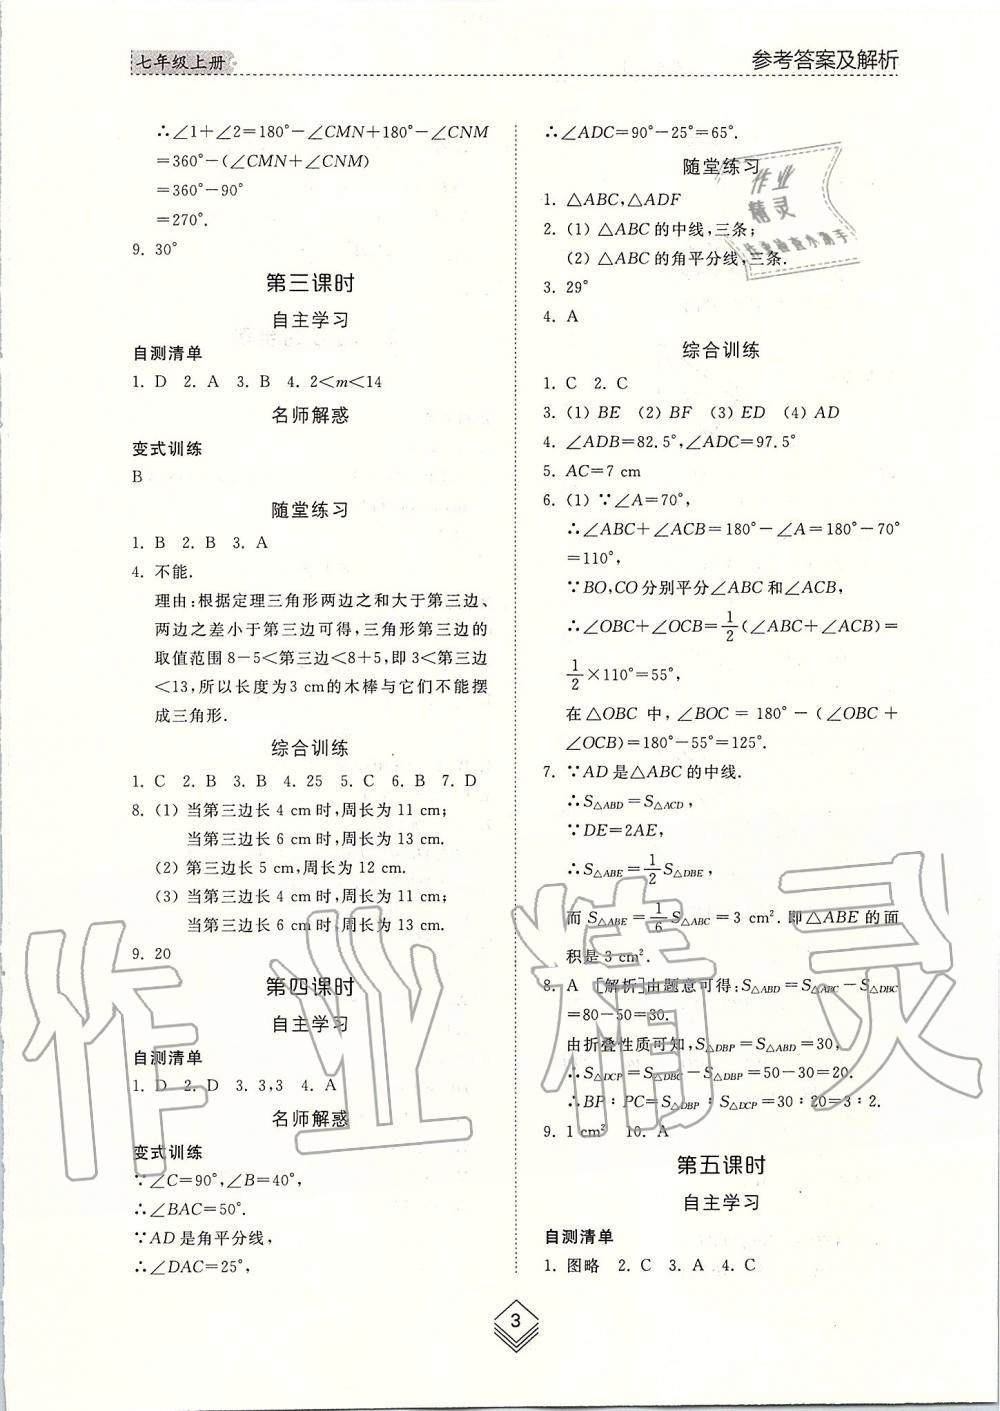 七年级上册
参考答案及解析
∴∠1+∠2=180°-∠CMN+180°-∠CNM
=360°-(∠CMN+∠CNM)
=360°-90°
=270°.
9. 30°
第三课时
自主学习
自测清单
1. D 2. A 3. B 4. 2<m<14
名师解惑
变式训练
B
随堂练习
1. B 2. B 3. A
4. 不能.
理由:根据定理三角形两边之和大于第三边、
两边之差小于第三边可得,三角形第三边的
取值范围8-5<第三边<8+5,即3<第三边
<13,所以长度为3 cm的木棒与它们不能摆
成三角形.
综合训练
1. C 2. B 3. B 4. 25 5. C 6. B 7. D
8. (1) 当第三边长4 cm时,周长为11 cm;
当第三边长6 cm时,周长为13 cm.
(2) 第三边长5 cm,周长为12 cm.
(3) 当第三边长4 cm时,周长为11 cm;
当第三边长6 cm时,周长为13 cm.
9. 20
第四课时
自主学习
自测清单
1. D 2. D 3. 3,3 4. A
名师解惑
变式训练
∵∠C=90°,∠B=40°,
∴∠BAC=50°.
∵AD是角平分线,
∴∠DAC=25°,
∴∠ADC=90°-25°=65°.
随堂练习
1. △ABC,△ADF
2. (1) △ABC的中线,三条;
(2) △ABC的角平分线,三条.
3. 29°
4. A
综合训练
1. C 2. C
3. (1) BE (2) BF (3) ED (4) AD
4. ∠ADB=82.5°,∠ADC=97.5°
5. AC=7 cm
6. (1) ∵∠A=70°,
∴∠ABC+∠ACB=180°-∠A=180°-70°
=110°,
∵BO,CO分别平分∠ABC和∠ACB,
∴∠OBC+∠OCB=1/2(∠ABC+∠ACB)=
1/2×110°=55°,
在△OBC中,∠BOC=180°-(∠OBC+
∠OCB)=180°-55°=125°.
7. ∵AD是△ABC的中线.
∴S△ABD=S△ACD,
∵DE=2AE,
∴S△ABE=1/2S△DBE,
而S△ABE=1/6S△ABC=3 cm².即△ABE的面
积是3 cm².
8. A [解析]由题意可得:S△ABD=S△ABC-S△DBC
=80-50=30.
由折叠性质可知,S△DBP=S△ABD=30,
∴S△DCP=S△DBC-S△DBP=50-30=20.
∴BP:PC=S△DBP:S△DCP=30:20=3:2.
9. 1 cm² 10. A
第五课时
自主学习
自测清单
1. 图略 2. C 3. A 4. C
3
作业
精灵
作业精灵